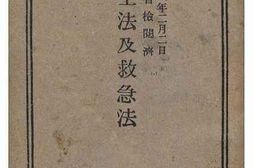 年二月二日
省檢閲濟
生法及救急法